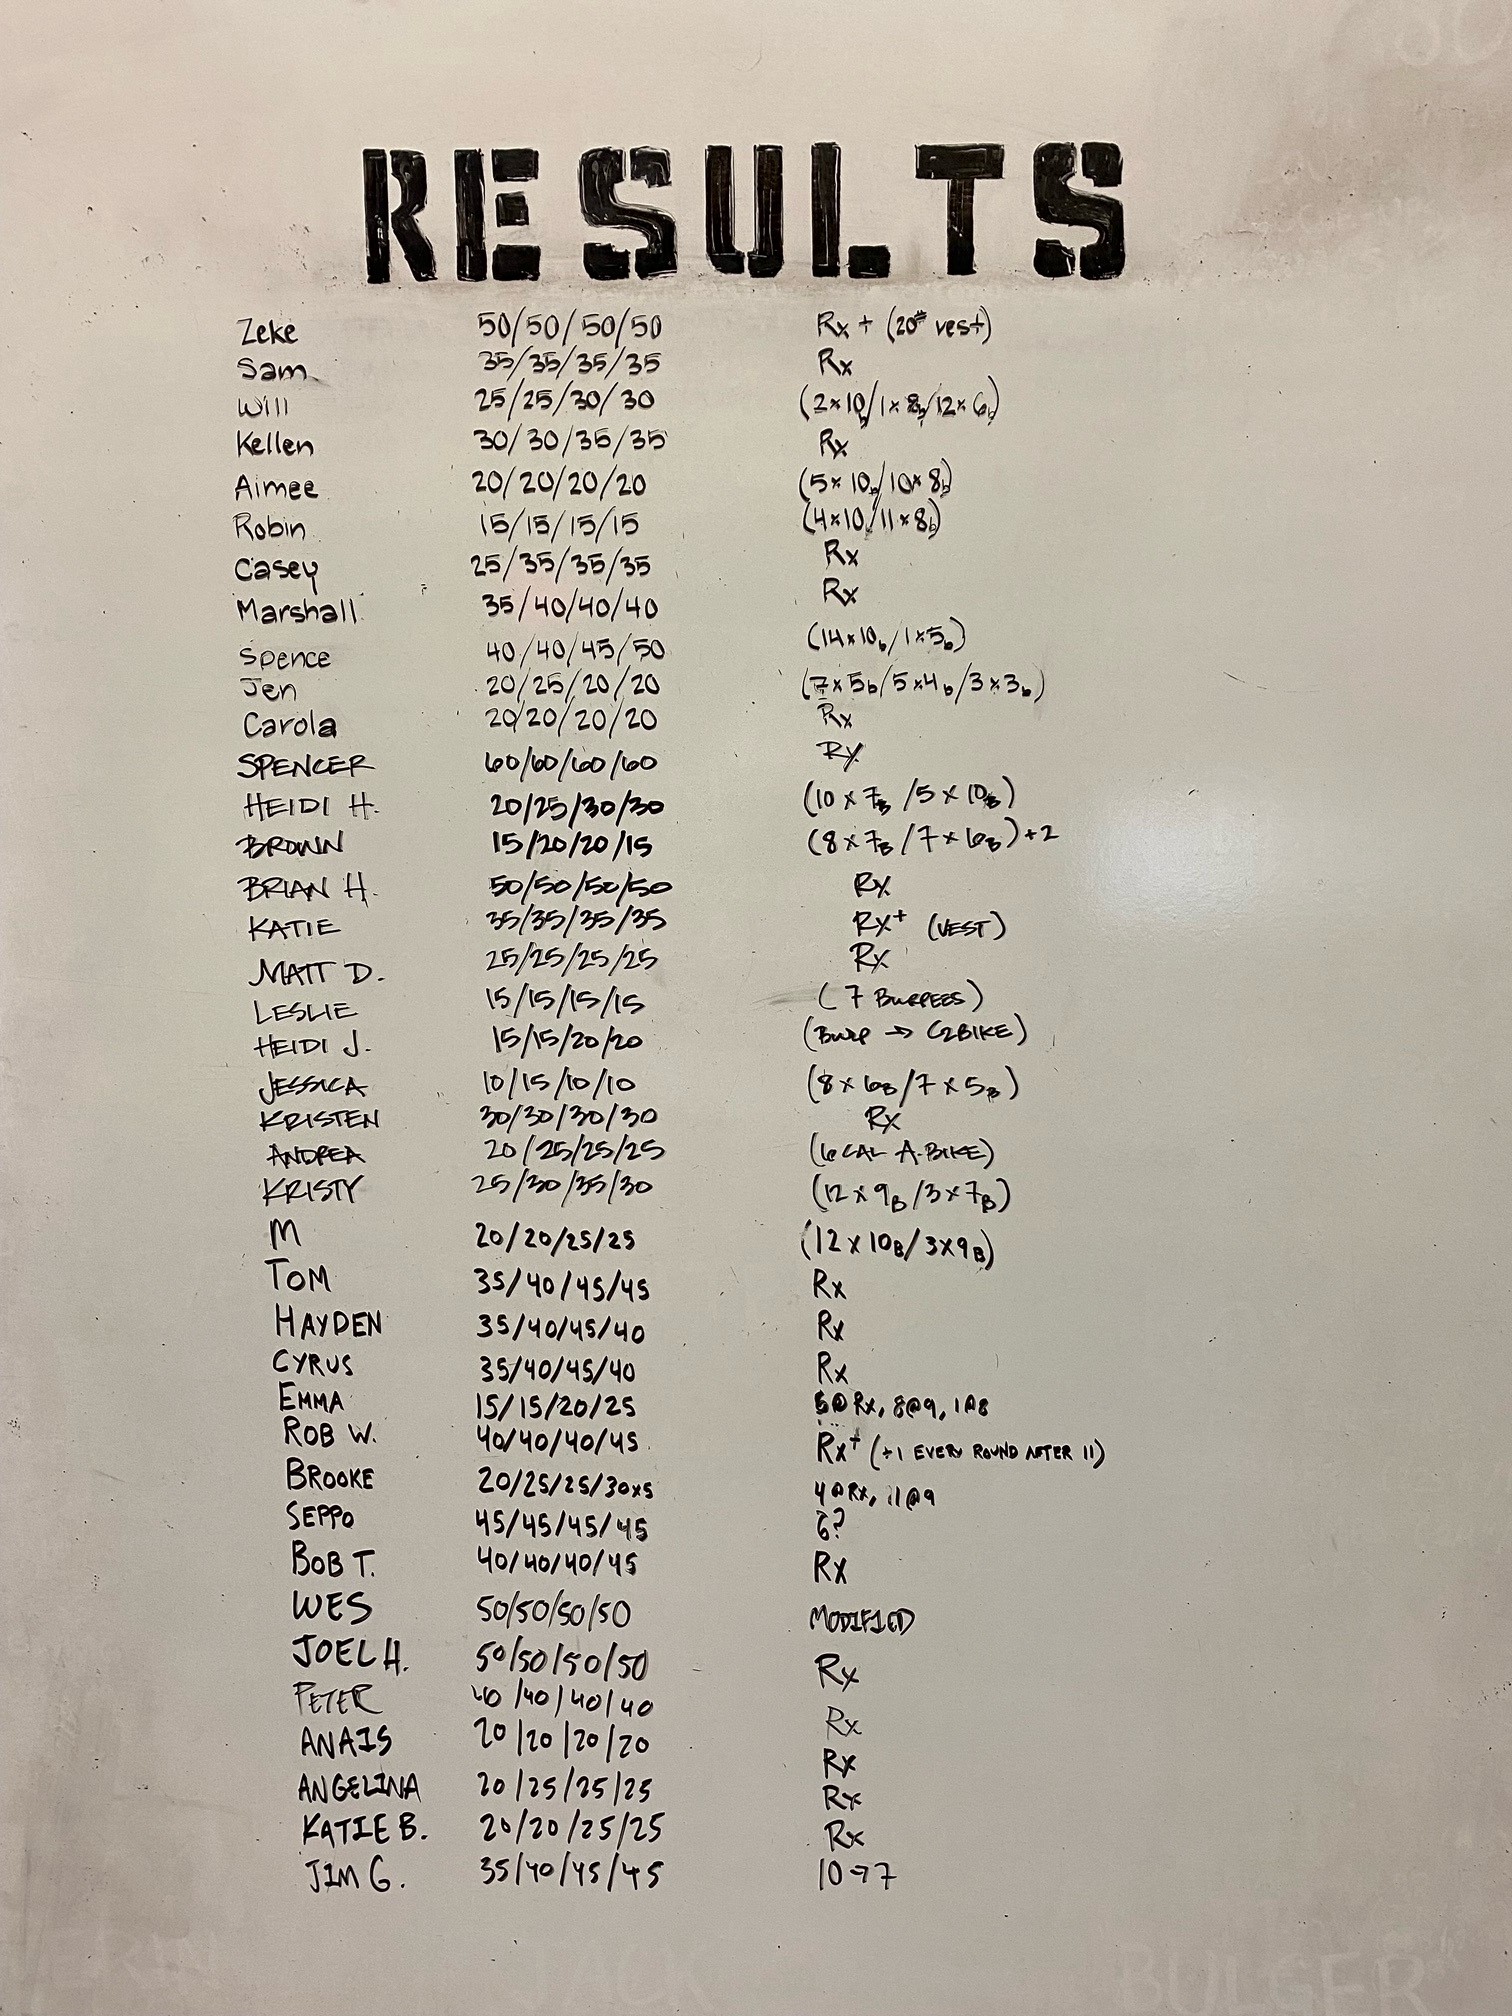 RESULTS
Zeke 50/50/50/50 Rx + (20# vest)
Sam 35/35/35/35 Rx
Will 25/25/30/30 (2x10b/1x8b/12x6b)
Kellen 30/30/35/35 Rx
Aimee 20/20/20/20 (5x10b/10x8b)
Robin 15/15/15/15 (4x10/11x8b)
Casey 25/35/35/35 Rx
Marshall 35/40/40/40 Rx
Spence 40/40/45/50 (14x10b/1x5b)
Jen 20/25/20/20 (7x5b/5x4b/3x3b)
Carola 20/20/20/20 Rx
SPENCER 60/60/60/60 Rx
HEIDI H. 20/25/30/30 (10x7B/5x10B)
BROWN 15/20/20/15 (8x7B/7x6B)+2
BRIAN H. 50/50/50/50 Rx
KATIE 35/35/35/35 Rx+ (VEST)
MATT D. 25/25/25/25 Rx
LESLIE 15/15/15/15 (7 BURPEES)
HEIDI J. 15/15/20/20 (BURP → C2BIKE)
JESSICA 10/15/10/10 (8x6B/7x5B)
KRISTEN 30/30/30/30 Rx
ANDREA 20/25/25/25 (6 CAL A-BIKE)
KRISTY 25/30/35/30 (12x9B/3x7B)
M 20/20/25/25 (12x10B/3x9B)
TOM 35/40/45/45 Rx
HAYDEN 35/40/45/40 Rx
CYRUS 35/40/45/40 Rx
EMMA 15/15/20/25 6@Rx, 8@9, 1@8
ROB W. 40/40/40/45 Rx+ (+1 EVERY ROUND AFTER 11)
BROOKE 20/25/25/30x5 4@Rx, 11@9
SEPPO 45/45/45/45 6?
BOB T. 40/40/40/45 Rx
WES 50/50/50/50 MODIFIED
JOEL H. 50/50/50/50 Rx
PETER 40/40/40/40 Rx
ANAIS 20/20/20/20 Rx
ANGELINA 20/25/25/25 Rx
KATIE B. 20/20/25/25 Rx
JIM G. 35/40/45/45 10→7
ERIN JACK BULGER